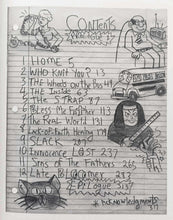 CONTENTS
PROLOGUE IX
1 HOME 5
2 WHO KNIT YOU? 13
3 THE WHEELS on the BUS 49
4 THE INSIDE 63
5 THE STRAP 87
6 Bless Me Father 113
7 The Real World 131
8 Lack-of-Faith Healing 179
9 SLACK 207
10 INNOCENCE LOST 237
11 Sins of the Fathers 265
12 LATE BLOOMER 293
EPILOGUE 315
ACKNOWLEDGMENTS